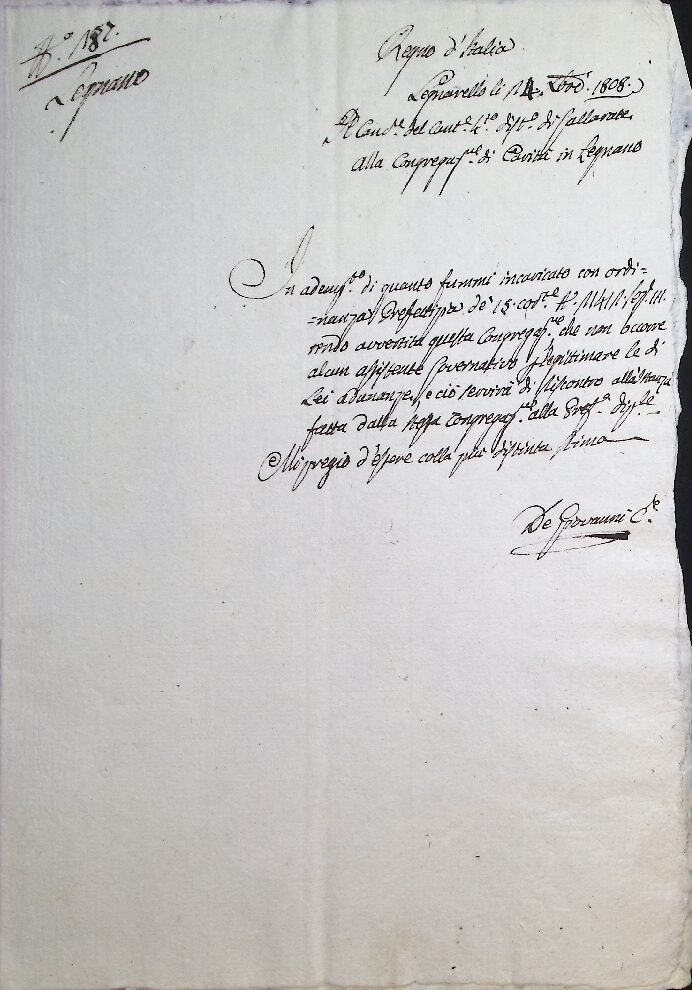 N.º 187.
Legnano
Regno d'Italia
Legnarello li 14. 1808.
Il Canc.e del Cant.e 4.to dist.o di Gallarate
alla Congregaz.ne di Carità in Legnano
In ademp.to di quanto fummi incaricato con ordi=
=nanza Prefettizia de' 15. cor.te N.º 11411. Sez. III.
rendo avvertita questa Congregaz.ne che non occorre
alcun assistente Governativo p legittimare le di
Lei adunanze, e ciò servirà di riscontro alla istanza
fatta dalla stessa Congregaz.ne alla Pref.a
Mi pregio d'essere colla più distinta stima
De Giovanni C.e